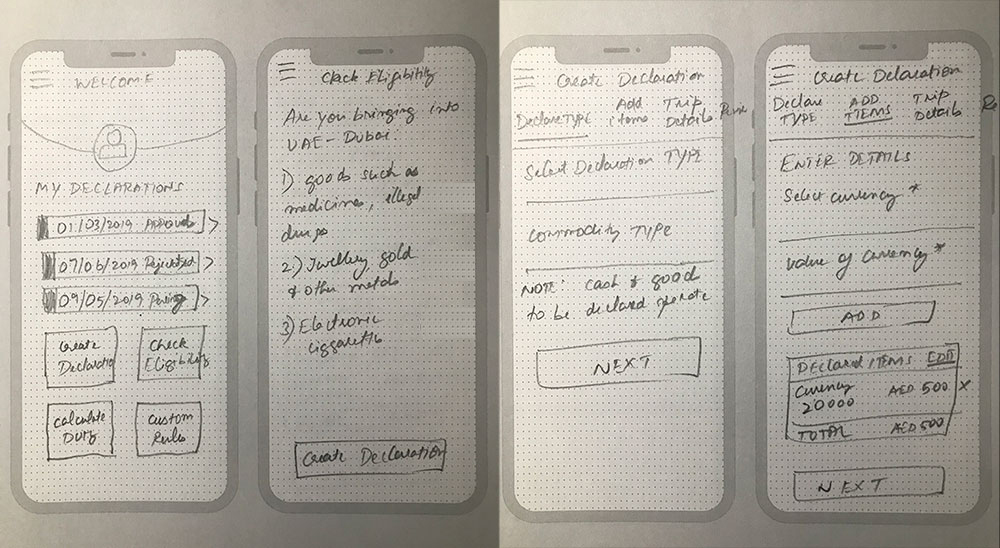 WELCOME
MY DECLARATIONS
01/03/2019 Approved >
07/06/2019 Rejected >
09/05/2019 >
Create
Declaratio
Check
Eligibility
Calculate
DUTY
Custom
Rules
Check Eligibility
Are you bringing into
UAE - Dubai:
1) goods such as
medicines, illegal
drugs
2) Jwellery, gold
& other metals
3) Electronic
Ciggarette
Create Declaration
Create Declaration
Declare TYPE
Add
items
Trip
Details
Select Declaration TYPE
Commodity TYPE
NOTE: cash & good
to be declared
NEXT
Create Delcaration
Declare
TYPE
ADD
ITEMS
Trip
Details
Re
ENTER DETAILS
Select currency *
Value of currency *
ADD
DEClared ITEMS EDIT
Currency
20000
AED 500 X
TOTAL AED 500
NEXT